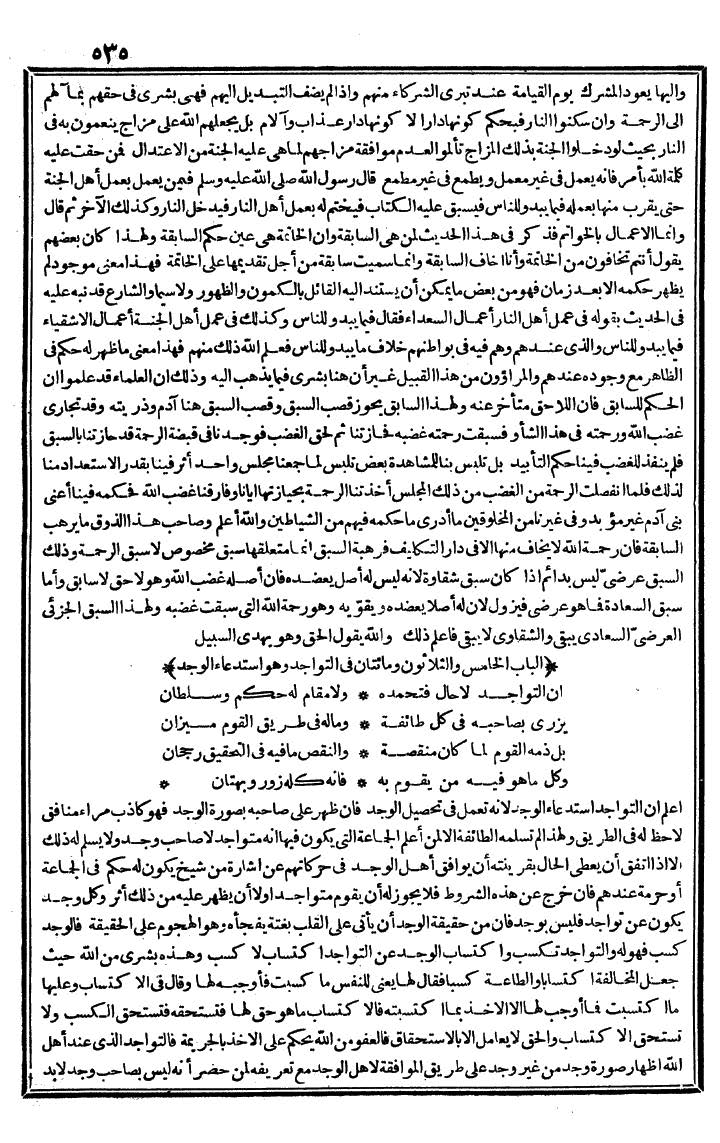 ٥٣٥
واليها يعود المشرك يوم القيامة عند تبرى الشركاء منهم واذا لم يضف التبديل اليهم فهى بشرى فى حقهم بما آلهم
الى الرحمة وان سكنوا النار فبحكم كونها دارا لا كونها دار عذاب وآلام بل يجعلهم الله على مزاج ينعمون به فى
النار بحيث لو دخلوا الجنة بذلك المزاج تألموا لعدم موافقة مزاجهم لما هى عليه الجنة من الاعتدال فمن حقت عليه
كلمة الله بأمر فانه يعمل فى غير معمل ويطمع فى غير مطمع قال رسول الله صلى الله عليه وسلم فمن يعمل بعمل أهل الجنة
حتى يقرب منها بعمله فيما يبدو للناس فيسبق عليه الكتاب فيختم له بعمل أهل النار فيدخل النار وكذلك الآخر ثم قال
وانما الاعمال بالخواتم فذكر فى هذا الحديث لمن هى السابقة وان الخاتمة هى عين حكم السابقة ولهذا كان بعضهم
يقول أنتم تخافون من الخاتمة وأنا اخاف السابقة وانما سميت سابقة من أجل تقديمها على الخاتمة فهذا معنى موجود لم
يظهر حكمه الا بعد زمان فهو من بعض ما يمكن أن يستند اليه القائل بالكمون والظهور ولا سيما والشارع قد نبه عليه
فى الحديث بقوله فى عمل أهل النار أعمال السعداء فقال فيما يبدو للناس وكذلك فى عمل أهل الجنة أعمال الاشقياء
فيما يبدو للناس والذى عندهم وهم فيه فى بواطنهم خلاف ما يبدو للناس فعلم الله ذلك منهم فهذا معنى ما ظهر له حكم فى
الظاهر مع وجوده عندهم والمراؤون من هذا القبيل غير أن هنا بشرى فيما يذهب اليه وذلك ان العلماء قد علموا ان
الحكم للسابق فان اللاحق متأخر عنه ولهذا السابق يحوز قصب السبق وقصب السبق هنا آدم وذريته وقد تجارى
غضب الله ورحمته فى هذا الشأو فسبقت رحمته غضبه فحازتنا ثم لحق الغضب فوجدنا فى قبضة الرحمة قد حازتنا بالسبق
فلم ينفذ للغضب فينا حكم التأييد بل تلبس بنا للمشاهدة بعض تلبس لما جمعنا مجلس واحد أثر فينا بقدر الاستعداد منا
لذلك فلما انفصلت الرحمة من الغضب من ذلك المجلس أخذتنا الرحمة بحيازتها ايانا وفارقنا غضب الله فحكمه فينا أعنى
بنى آدم غير مؤبد وفى غيرنا من المخلوقين ما أدرى ما حكمه فيهم من الشياطين والله أعلم وصاحب هذا الذوق ما يرهب
السابقة فان رحمة الله لا يخاف منها الا فى دار التكليف فرهبة السبق انما متعلقها سبق مخصوص لا سبق الرحمة وذلك
السبق عرضى ليس بدائم اذا كان سبق شقاوة لانه ليس له أصل يعضده فان أصله غضب الله وهو لاحق لا سابق وأما
سبق السعادة فما هو عرضى فيزول لان له أصلا يعضده ويقويه وهو رحمة الله التى سبقت غضبه ولهذا السبق الجزئى
العرضى السعادى يبقى والشقاوى لا يبقى فاعلم ذلك والله يقول الحق وهو يهدى السبيل
﴿الباب الخامس والثلاثون ومائتان فى التواجد وهو استدعاء الوجد﴾
ان التواجد لا حال فتحمده * ولا مقام له حكم وسلطان
يزرى بصاحبه فى كل طائفة * وماله فى طريق القوم ميزان
بل ذمه القوم لما كان منقصة * والنقص ما فيه فى التحقيق رجحان
وكل ما هو فيه من يقوم به * فانه كله زور وبهتان *
اعلم ان التواجد استدعاء الوجد لانه تعمل فى تحصيل الوجد فان ظهر على صاحبه بصورة الوجد فهو كاذب مراء منافق
لا حظ له فى الطريق ولهذا لم تسلمه الطائفة الا لمن أعلم الجماعة التى يكون فيها انه متواجد لا صاحب وجد ولا يسلم له ذلك
الا اذا اتفق أن يعطى الحال بقرينته أن يوافق أهل الوجد فى حركاتهم عن اشارة من شيخ يكون له حكم فى الجماعة
أو حرمة عندهم فان خرج عن هذه الشروط فلا يجوز له أن يقوم متواجدا ولا أن يظهر عليه من ذلك أثر وكل وجد
يكون عن تواجد فليس بوجد فان من حقيقة الوجد أن يأتى على القلب بغتة يفجأه وهو الهجوم على الحقيقة فالوجد
كسب فهو له والتواجد تكسب واكتساب الوجد عن التواجد اكتساب لا كسب وهذه بشرى من الله حيث
جعل المخالفة اكتسابا والطاعة كسبا فقال لها يعنى للنفس ما كسبت فأوجبه لها وقال فى الاكتساب وعليها
ما اكتسبت فما أوجب لها الا الاخذ بما اكتسبته فالاكتساب ما هو حق لها فتستحقه فتستحق الكسب ولا
تستحق الاكتساب والحق لا يعامل الا بالاستحقاق فالعفو من الله يحكم على الاخذ بالجريمة فالتواجد الذى عند أهل
الله اظهار صورة وجد من غير وجد على طريق الموافقة لاهل الوجد مع تعريفه لمن حضر أنه ليس بصاحب وجد لا بد